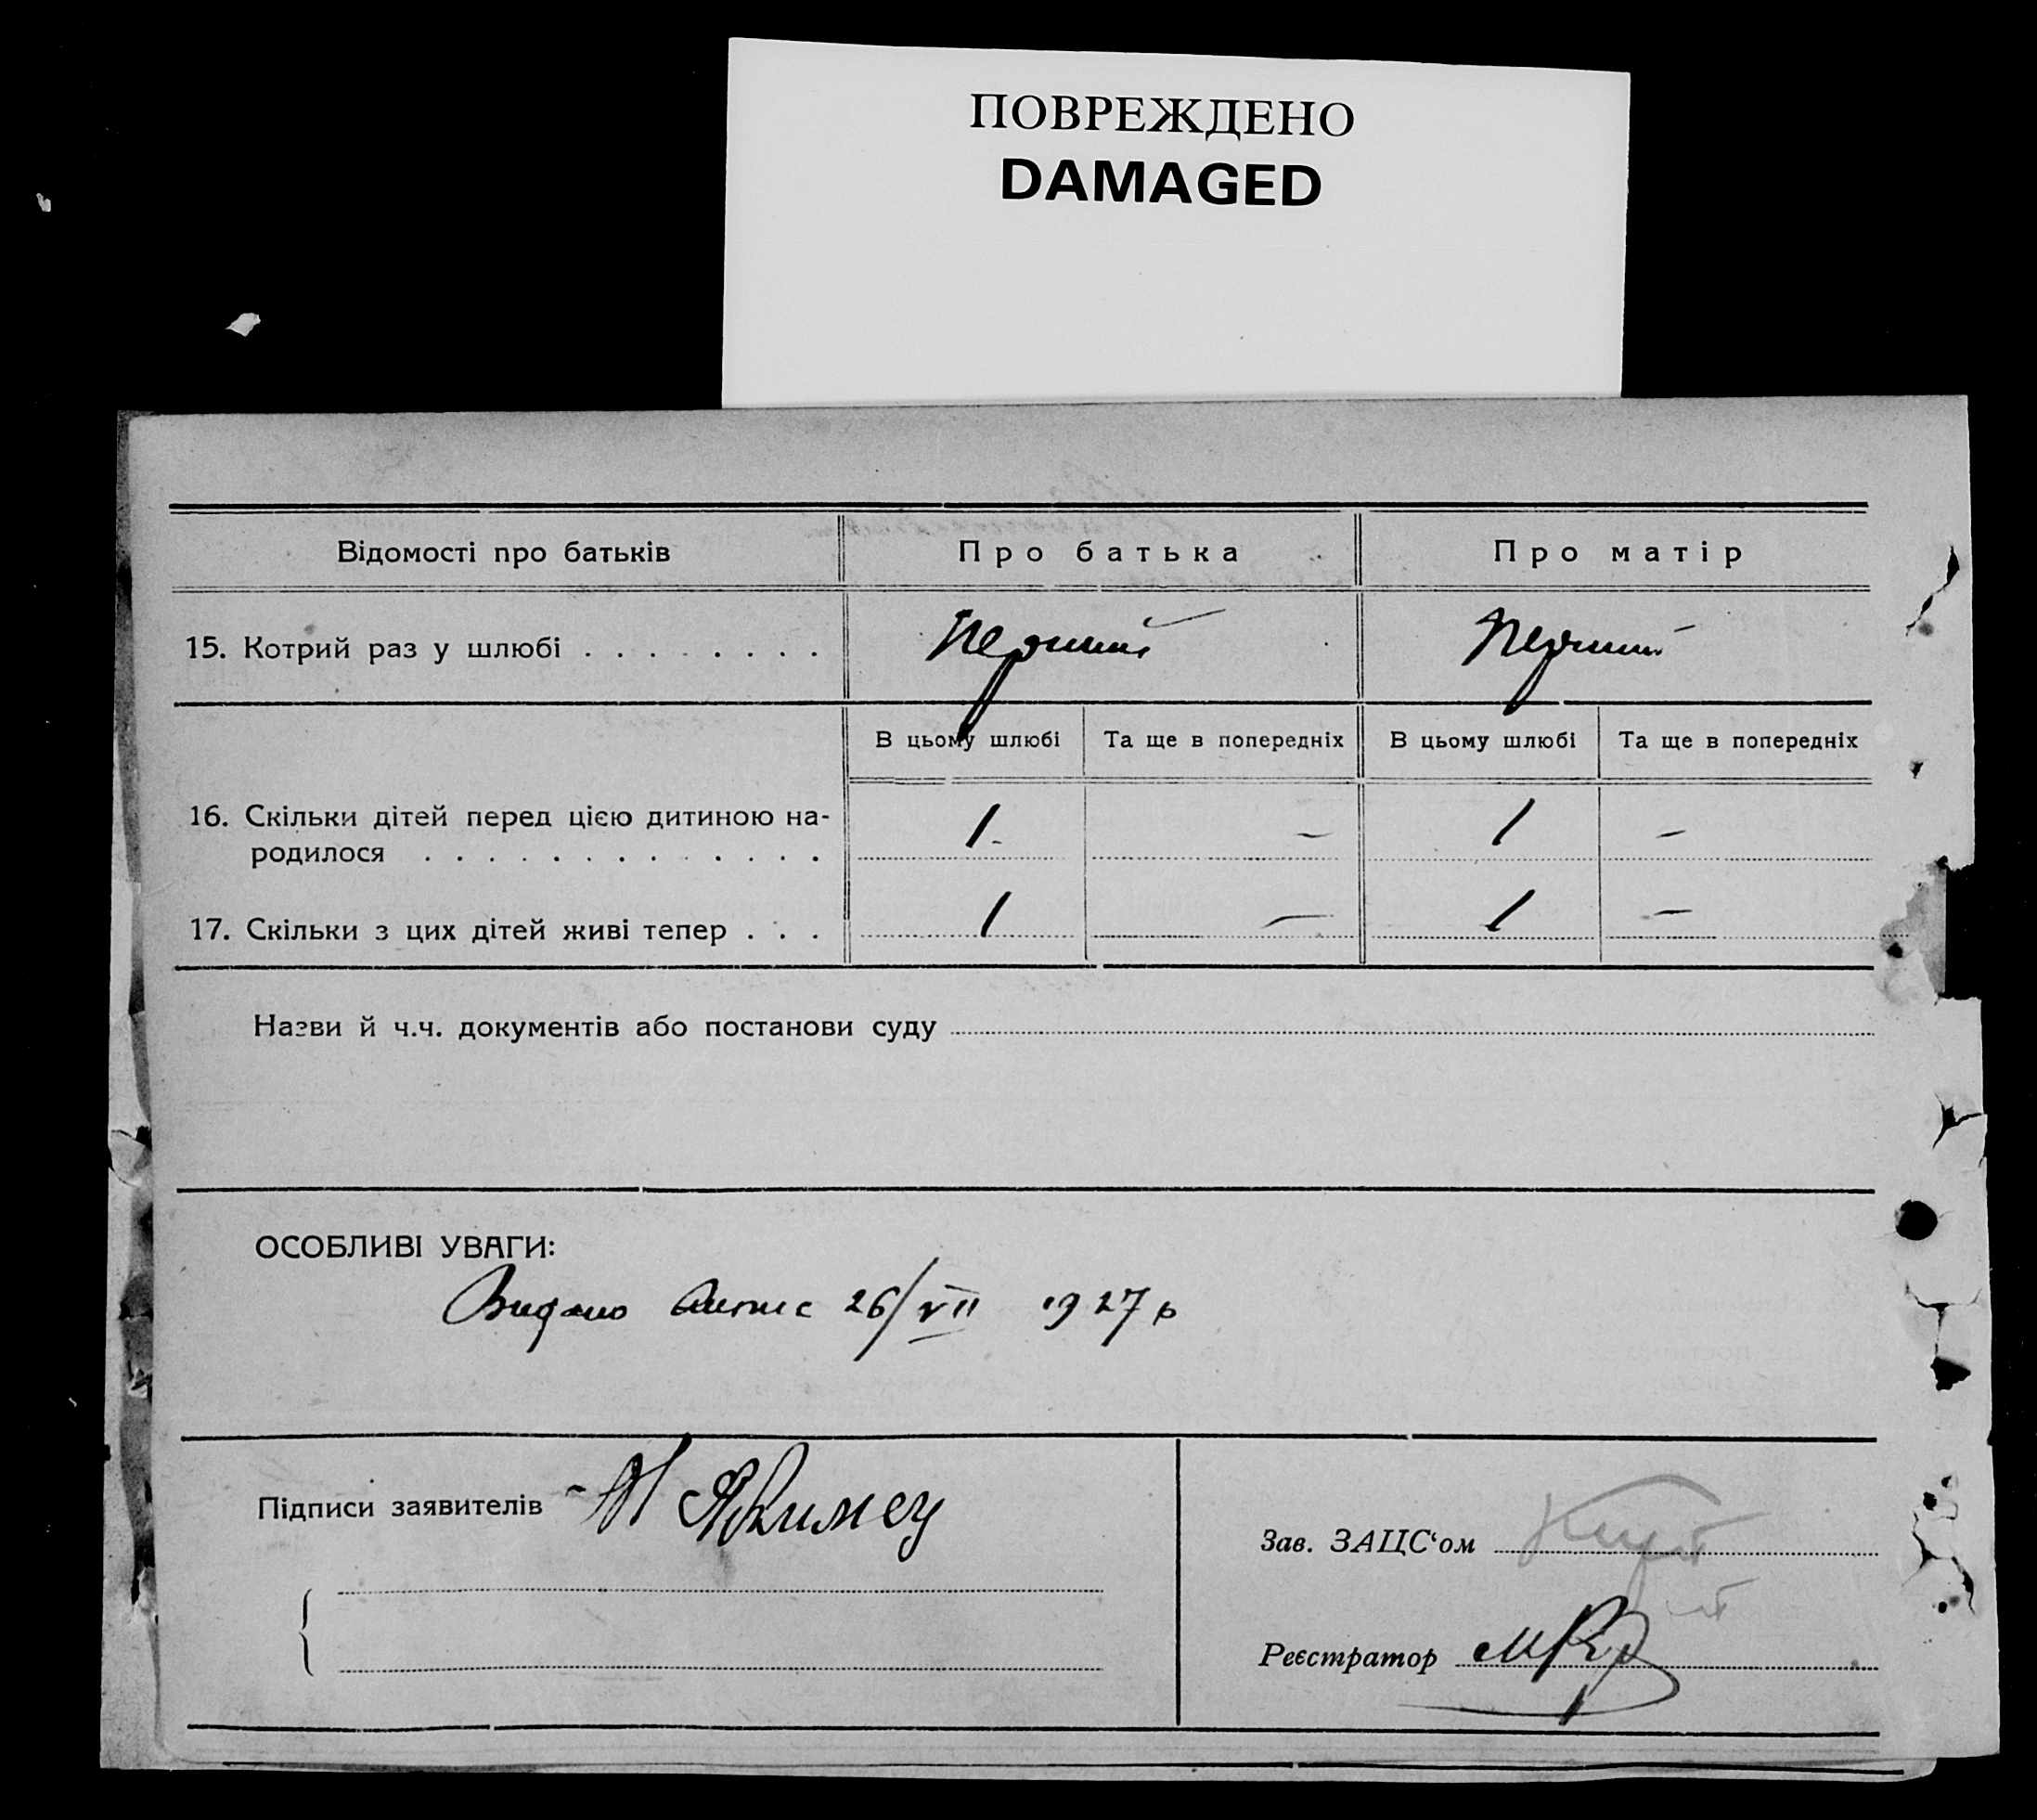 ПОВРЕЖДЕНО
DAMAGED
Відомості про батьків Про батька Про матір
15. Котрий раз у шлюбі . . . . . . . . Перший Перший
В цьому шлюбі Та ще в попередніх В цьому шлюбі Та ще в попередніх
16. Скільки дітей перед цією дитиною на-
родилося . . . . . . . . . . . . . . 1 - 1 -
17. Скільки з цих дітей живі тепер . . . 1 - 1 -
Назви й ч.ч. документів або постанови суду
ОСОБЛИВІ УВАГИ:
Видано 26/VII 1927 р
Підписи заявителів
Зав. ЗАЦС‘ом
Реєстратор